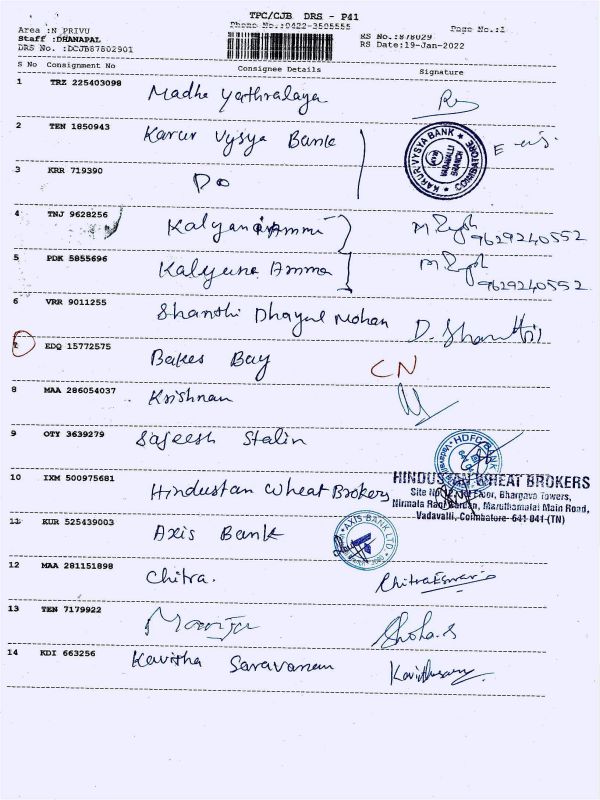 TPC/CJB DRS - P41
Area :N PRIVU Phone No.:0422-3505555 Page No.:1
Staff :DHANAPAL RS No.:878029
DRS No. :DCJB87802901 RS Date:19-Jan-2022
S No Consignment No Consignee Details Signature
1 TRZ 225403098 Madha Yathralaya
2 TEN 1850943 Karur Vysya Bank
KARUR VYSYA BANK VADAVALLI BRANCH COIMBATORE
3 KRR 719390 Do
4 TNJ 9628256 Kalyani Ammi
9629240552
5 PDK 5855696 Kalyana Amma
9629240552
6 VRR 9011255 Shanthi Dhayal Mohan D. Shanthi
7 EDQ 15772575 Bakes Bay CN
8 MAA 286054037 Krishnan
9 OTY 3639279 Sajeesh Stalin
HDFC BANK
10 IXM 500975681 Hindustan Wheat Brokers
HINDUSTAN WHEAT BROKERS
Site No. Floor, Bhargava Towers,
Nirmala Rani Maruthamalai Main Road,
Vadavalli, Coimbatore- 641 041 (TN)
11 KUR 525439003 Axis Bank
AXIS BANK LTD
12 MAA 281151898 Chitra. Chitraeswari
13 TEN 7179922 Shoba.S
14 KDI 663256 Kavitha Saravanan